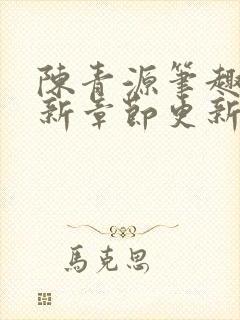 陳青源筆趣
新章節更新
馬克思